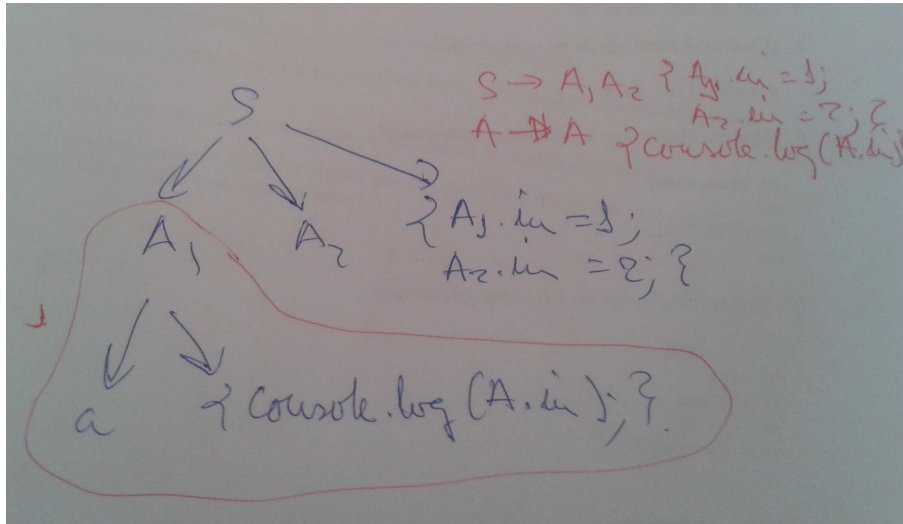 S → A₁ A₂ { A₁.in = 1;
A₂.in = 2; }
A → A {console.log(A.in)
S
A₁ A₂ { A₁.in = 1;
A₂.in = 2; }
1
a { console.log (A.in); }